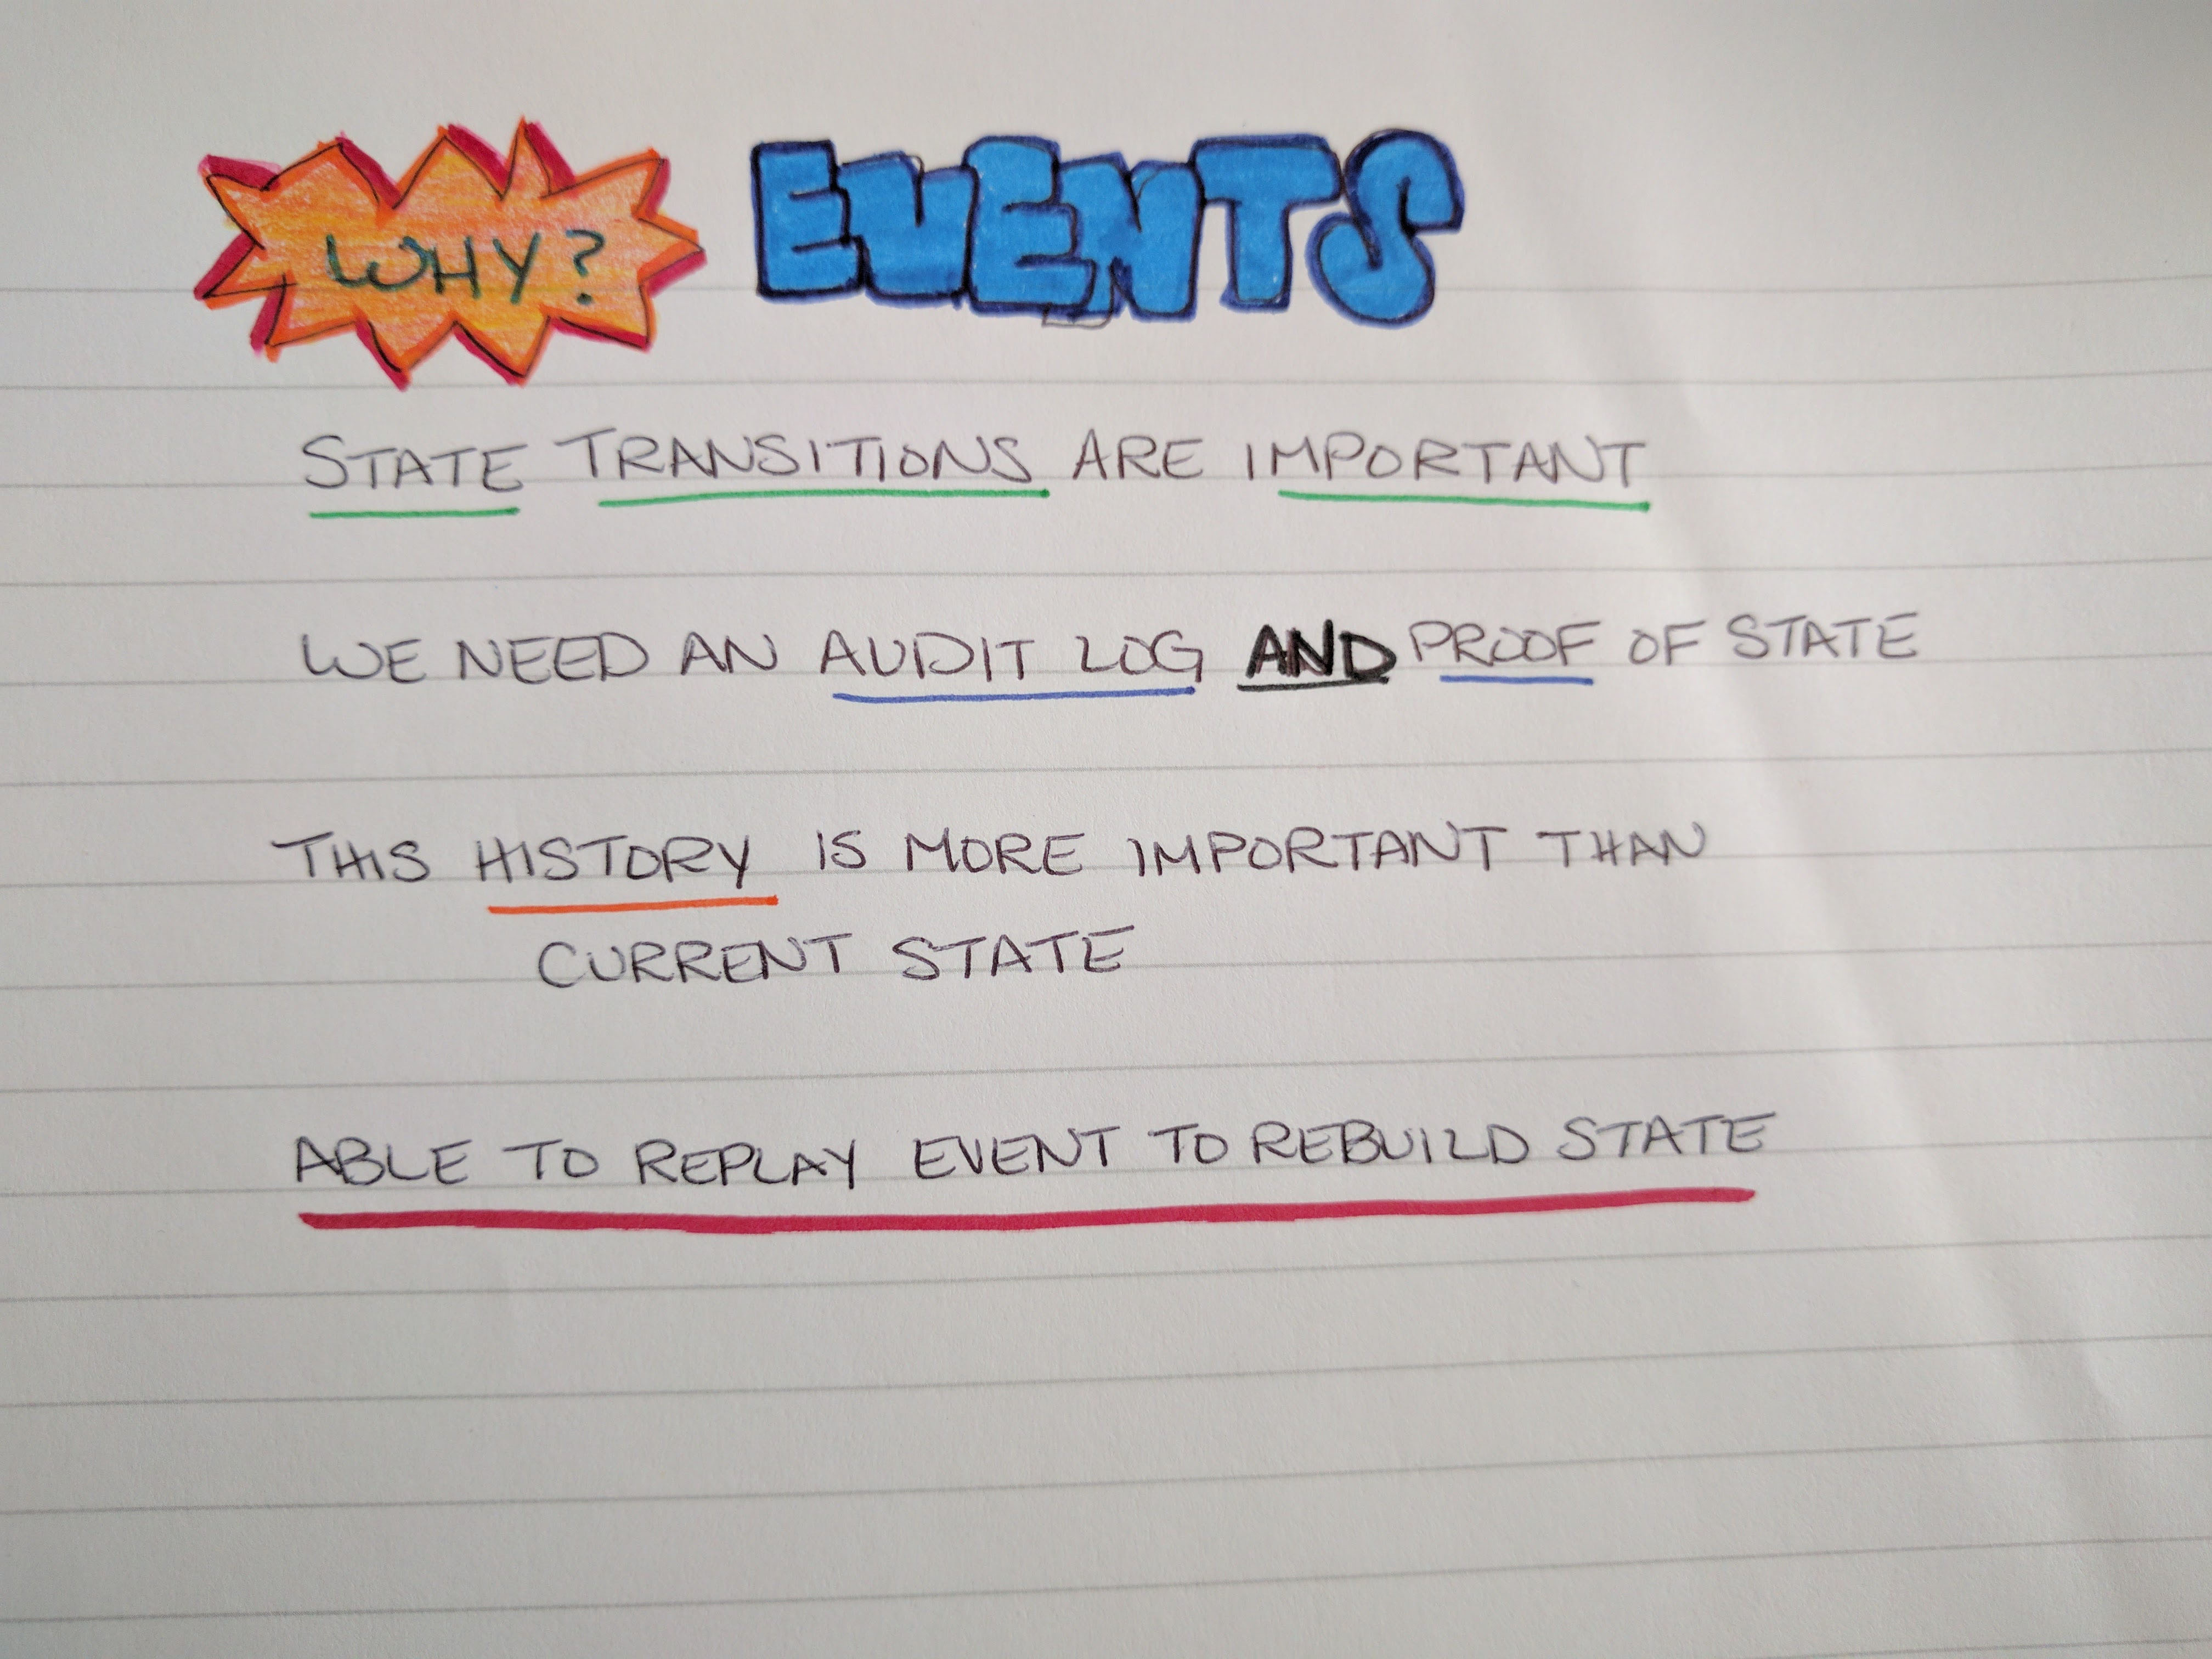 WHY? EVENTS
STATE TRANSITIONS ARE IMPORTANT
WE NEED AN AUDIT LOG AND PROOF OF STATE
THIS HISTORY IS MORE IMPORTANT THAN
CURRENT STATE
ABLE TO REPLAY EVENT TO REBUILD STATE